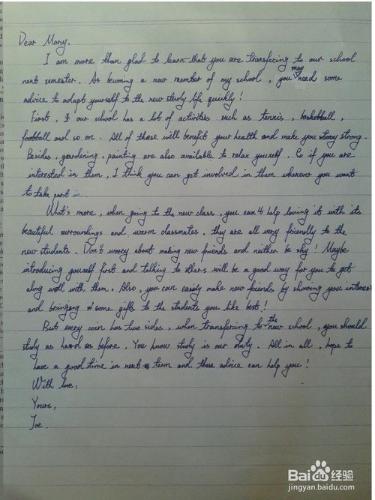 Dear Mary,
I am more than glad to learn that you are transfering to our school
next semester. As becoming a new member of my school, you may need some
advice to adapt yourself to the new study life quickly!
First, our school has a lot of activities such as tennis, basketball,
football and so on. All of these will benefit your health and make you strong.
Besides, gardening, painting are also available to relax yourself. So if you are
interested in them, I think you can get involved in them whenever you want
to take part in.
What's more, when going to the new class, you can't help loving it with its
beautiful surroundings and warm classmates, they are all very friendly to the
new students. Don't worry about making new friends and neither be shy! Maybe
introducing yourself first and talking to others will be a good way for you to get
along well with them. Also, you can easily make new friends by showing your
and bringing some gifts to the students you like best!
But every coin has two sides, when transfering to the new school, you should
study as hard as before. You know study is our duty. All in all, hope to
have a good time in next term and these advice can help you!
With love,
Yours,
Joe
Baidu经验
jingyan.baidu.com